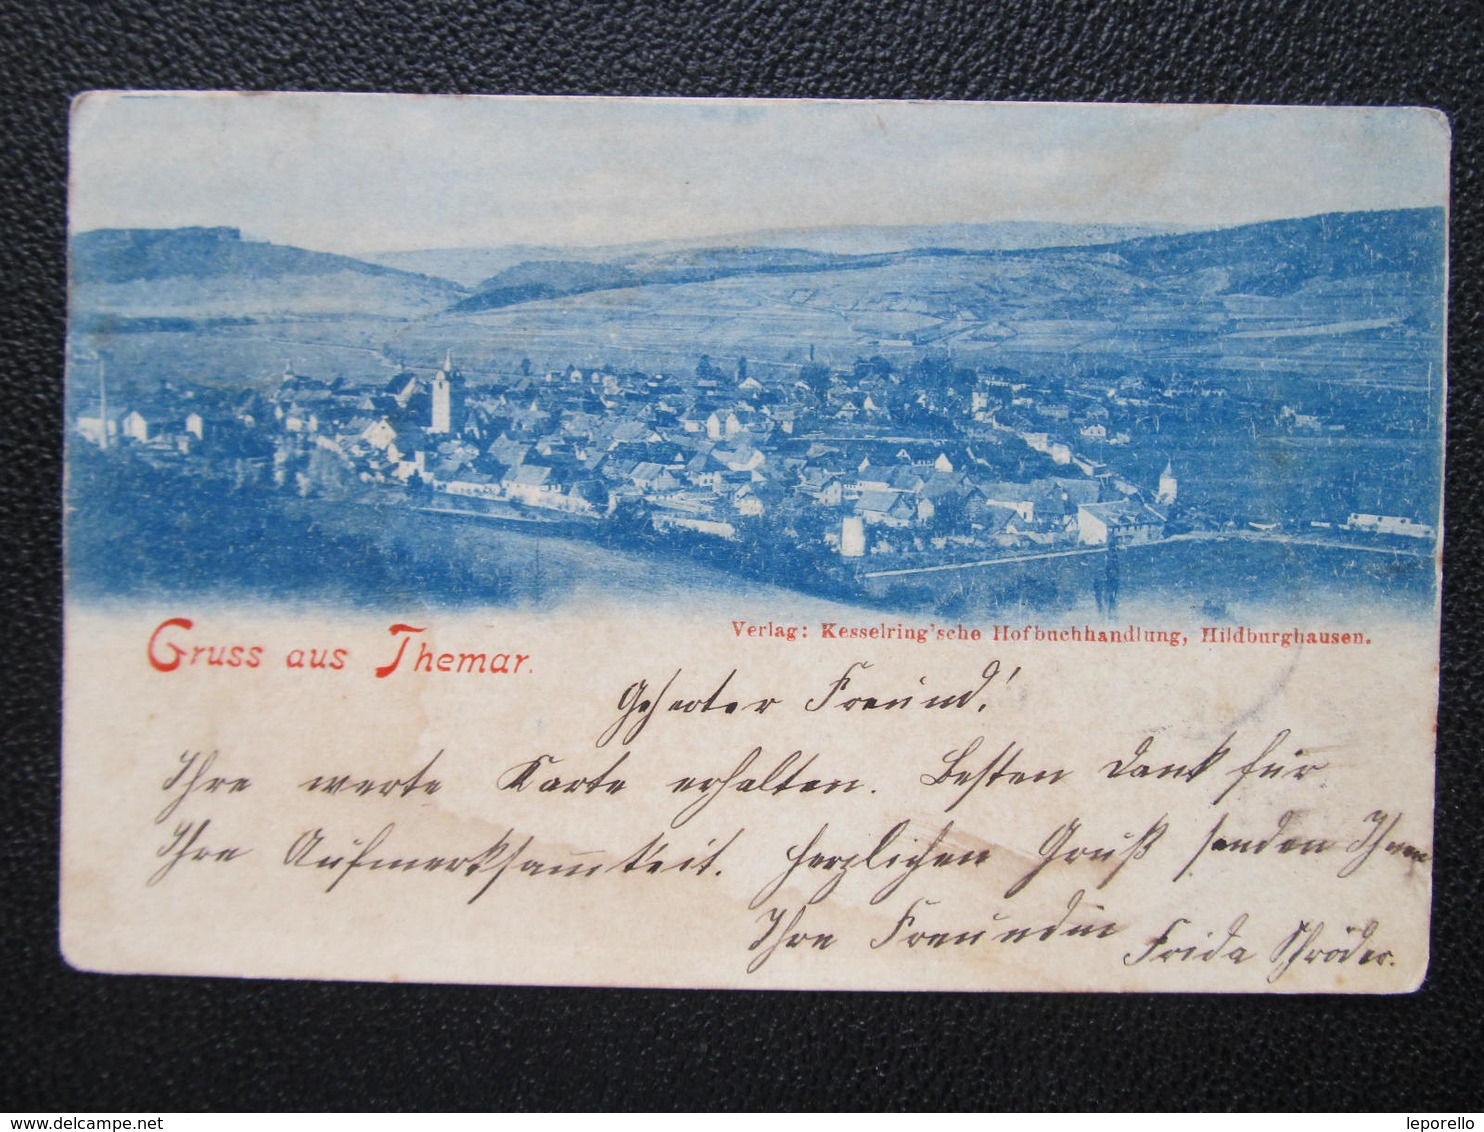 Gruss aus Themar.
Verlag: Kesselring'sche Hofbuchhandlung, Hildburghausen.
Geehrter Freund!
Ihre werte Karte erhalten. Besten Dank für
Ihre Aufmerksamkeit. Herzlichen Gruß senden Ihnen
Ihre Freundin Frida Schröder.
www.delcampe.net
leporello